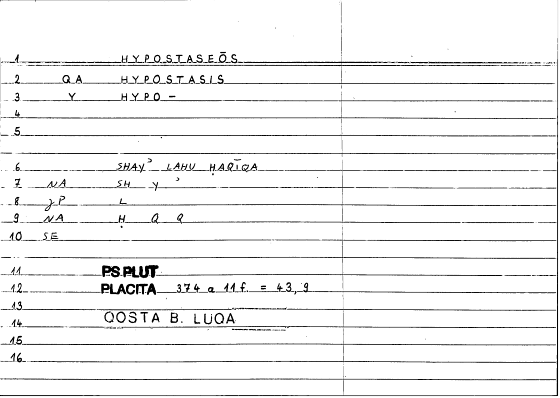 1 HYPOSTASEŌS
2 QA HYPOSTASIS
3 Y HYPO-
4
5
6 SHAYʾ LAHU ḤAQĪQA
7 NA SH Y ʾ
8 JP L
9 NA Ḥ Q Q
10 SE
11 PS.PLUT
12 PLACITA 374 a 11 f. = 43,9
13
14 QOSTA B. LUQA
15
16